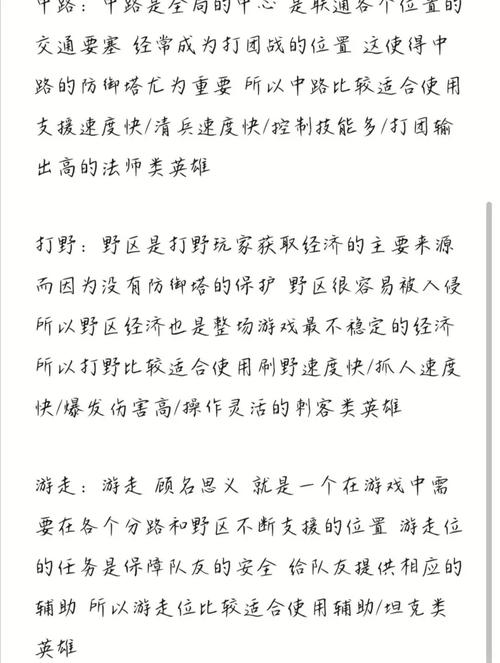 中路：中路是全局的中心 是联通各个位置的
交通要塞 经常成为打团战的位置 这使得中
路的防御塔尤为重要 所以中路比较适合使用
支援速度快/清兵速度快/控制技能多/打团输
出高的法师类英雄
打野：野区是打野玩家获取经济的主要来源
而因为没有防御塔的保护 野区很容易被入侵
所以野区经济也是整场游戏最不稳定的经济
所以打野比较适合使用刷野速度快/抓人速度
快/爆发伤害高/操作灵活的刺客类英雄
游走：游走 顾名思义 就是一个在游戏中需
要在各个分路和野区不断支援的位置 游走位
的任务是保障队友的安全 给队友提供相应的
辅助 所以游走位比较适合使用辅助/坦克类
英雄